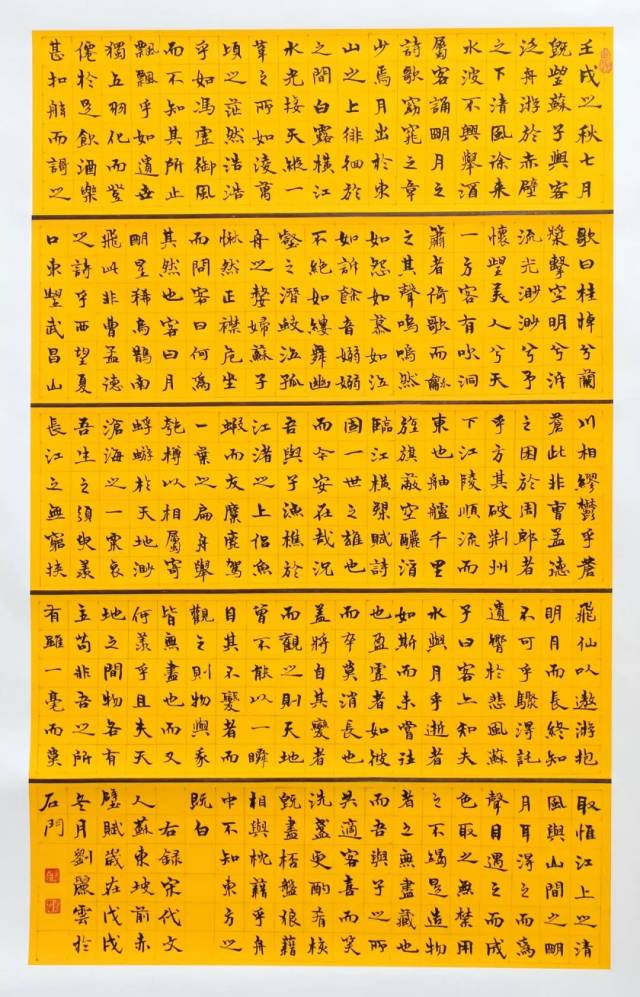 壬戌之秋七月
既望蘇子與客
泛舟游於赤壁
之下清風徐來
水波不興舉酒
屬客誦明月之
詩歌窈窕之章
少焉月出於東
山之上徘徊於
之間白露橫江
水光接天縱一
葦之所如凌萬
頃之茫然浩浩
乎如馮虛御風
而不知其所止
飄飄乎如遺世
獨立羽化而登
僊於是飲酒樂
甚扣舷而謌之
歌曰桂棹兮蘭
槳擊空明兮泝
流光渺渺兮予
懷望美人兮天
一方客有吹洞
簫者倚歌而龢
之其聲嗚嗚然
如怨如慕如泣
如訴餘音嫋嫋
不絕如縷舞幽
壑之潛蛟泣孤
舟之嫠婦蘇子
愀然正襟危坐
而問客曰何為
其然也客曰月
明星稀烏鵲南
飛此非曹孟德
之詩乎西望夏
口東望武昌山
川相繆鬱乎蒼
蒼此非曹孟德
之困於周郎者
乎方其破荊州
下江陵順流而
東也舳艫千里
旌旗蔽空釃酒
臨江橫槊賦詩
固一世之雄也
而今安在哉況
吾與子漁樵於
江渚之上侶魚
蝦而友麋鹿駕
一葉之扁舟舉
匏樽以相屬寄
蜉蝣於天地渺
滄海之一粟哀
吾生之須臾羨
長江之無窮挾
飛仙以遨游抱
明月而長終知
不可乎驟得託
遺響於悲風蘇
子曰客知夫
水與月乎逝者
如斯而未嘗往
也盈虛者如彼
而卒莫消長也
蓋將自其變者
而觀之則天地
曾不能以一瞬
自其不變者而
觀之則物與我
皆無盡也而又
何羨乎且夫天
地之間物各有
主苟非吾之所
有雖一毫而莫
取惟江上之清
風與山間之明
月耳得之而為
聲目遇之而成
色取之無禁用
之不竭是造物
者之無盡藏也
而吾與子之所
共適客喜而笑
洗盞更酌肴核
既盡杯盤狼藉
相與枕藉乎舟
中不知東方之
既白
右録宋代文
人蘇東坡前赤
壁賦歲在戊戌
冬月劉麗雲於
石門